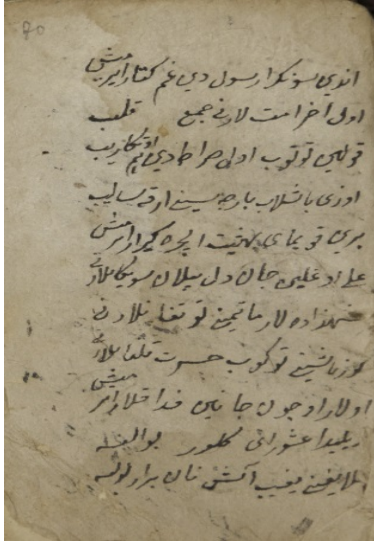 اندی سونکرا رسول دین غم کتار ایرمیش
اول آخر امت لارنی جمع قلیب
قولین توتوب اول صراط دین هم اوتکاریب
اوزی باشلاب بارچه سین ارقه سالیب
بری قویمای بهشت ایچره کیرار ایرمیش
علی اوغلین جان دل بیلان سویکانلارنی
شهزاده لار ماتمین توتغانلارنی
کوز یاشین توکوب حسرت قلغانلارنی
اولار اوچون جانین فدا قیلار ایرمیش
عشورانی کلور بو
آش نان برار بولسه